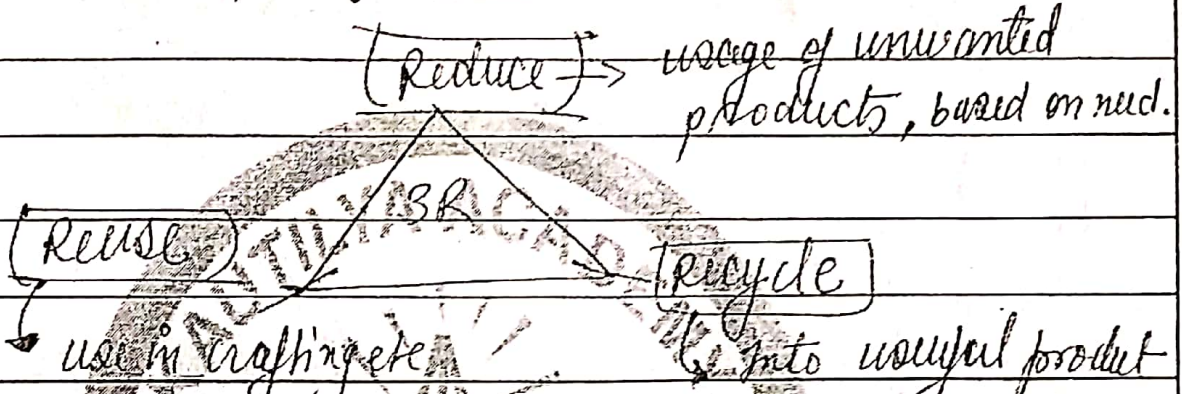 Reduce → usage of unwanted
products, based on need.
3R
Reuse
Recycle
use in crafting etc
into useful product